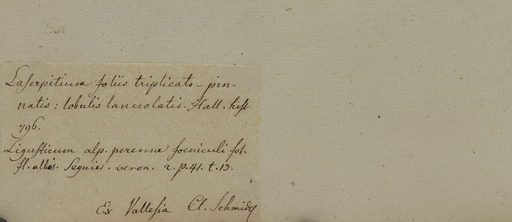 Laserpitium foliis triplicato-pin-
natis: lobulis lanceolatis. Hall. hist
796.
Ligusticum alp. perenne foeniculi fol.
fl. albis. Seguier. veron. 2. p. 41. t. 13.
Ex Vallesia Cl. Schmidt